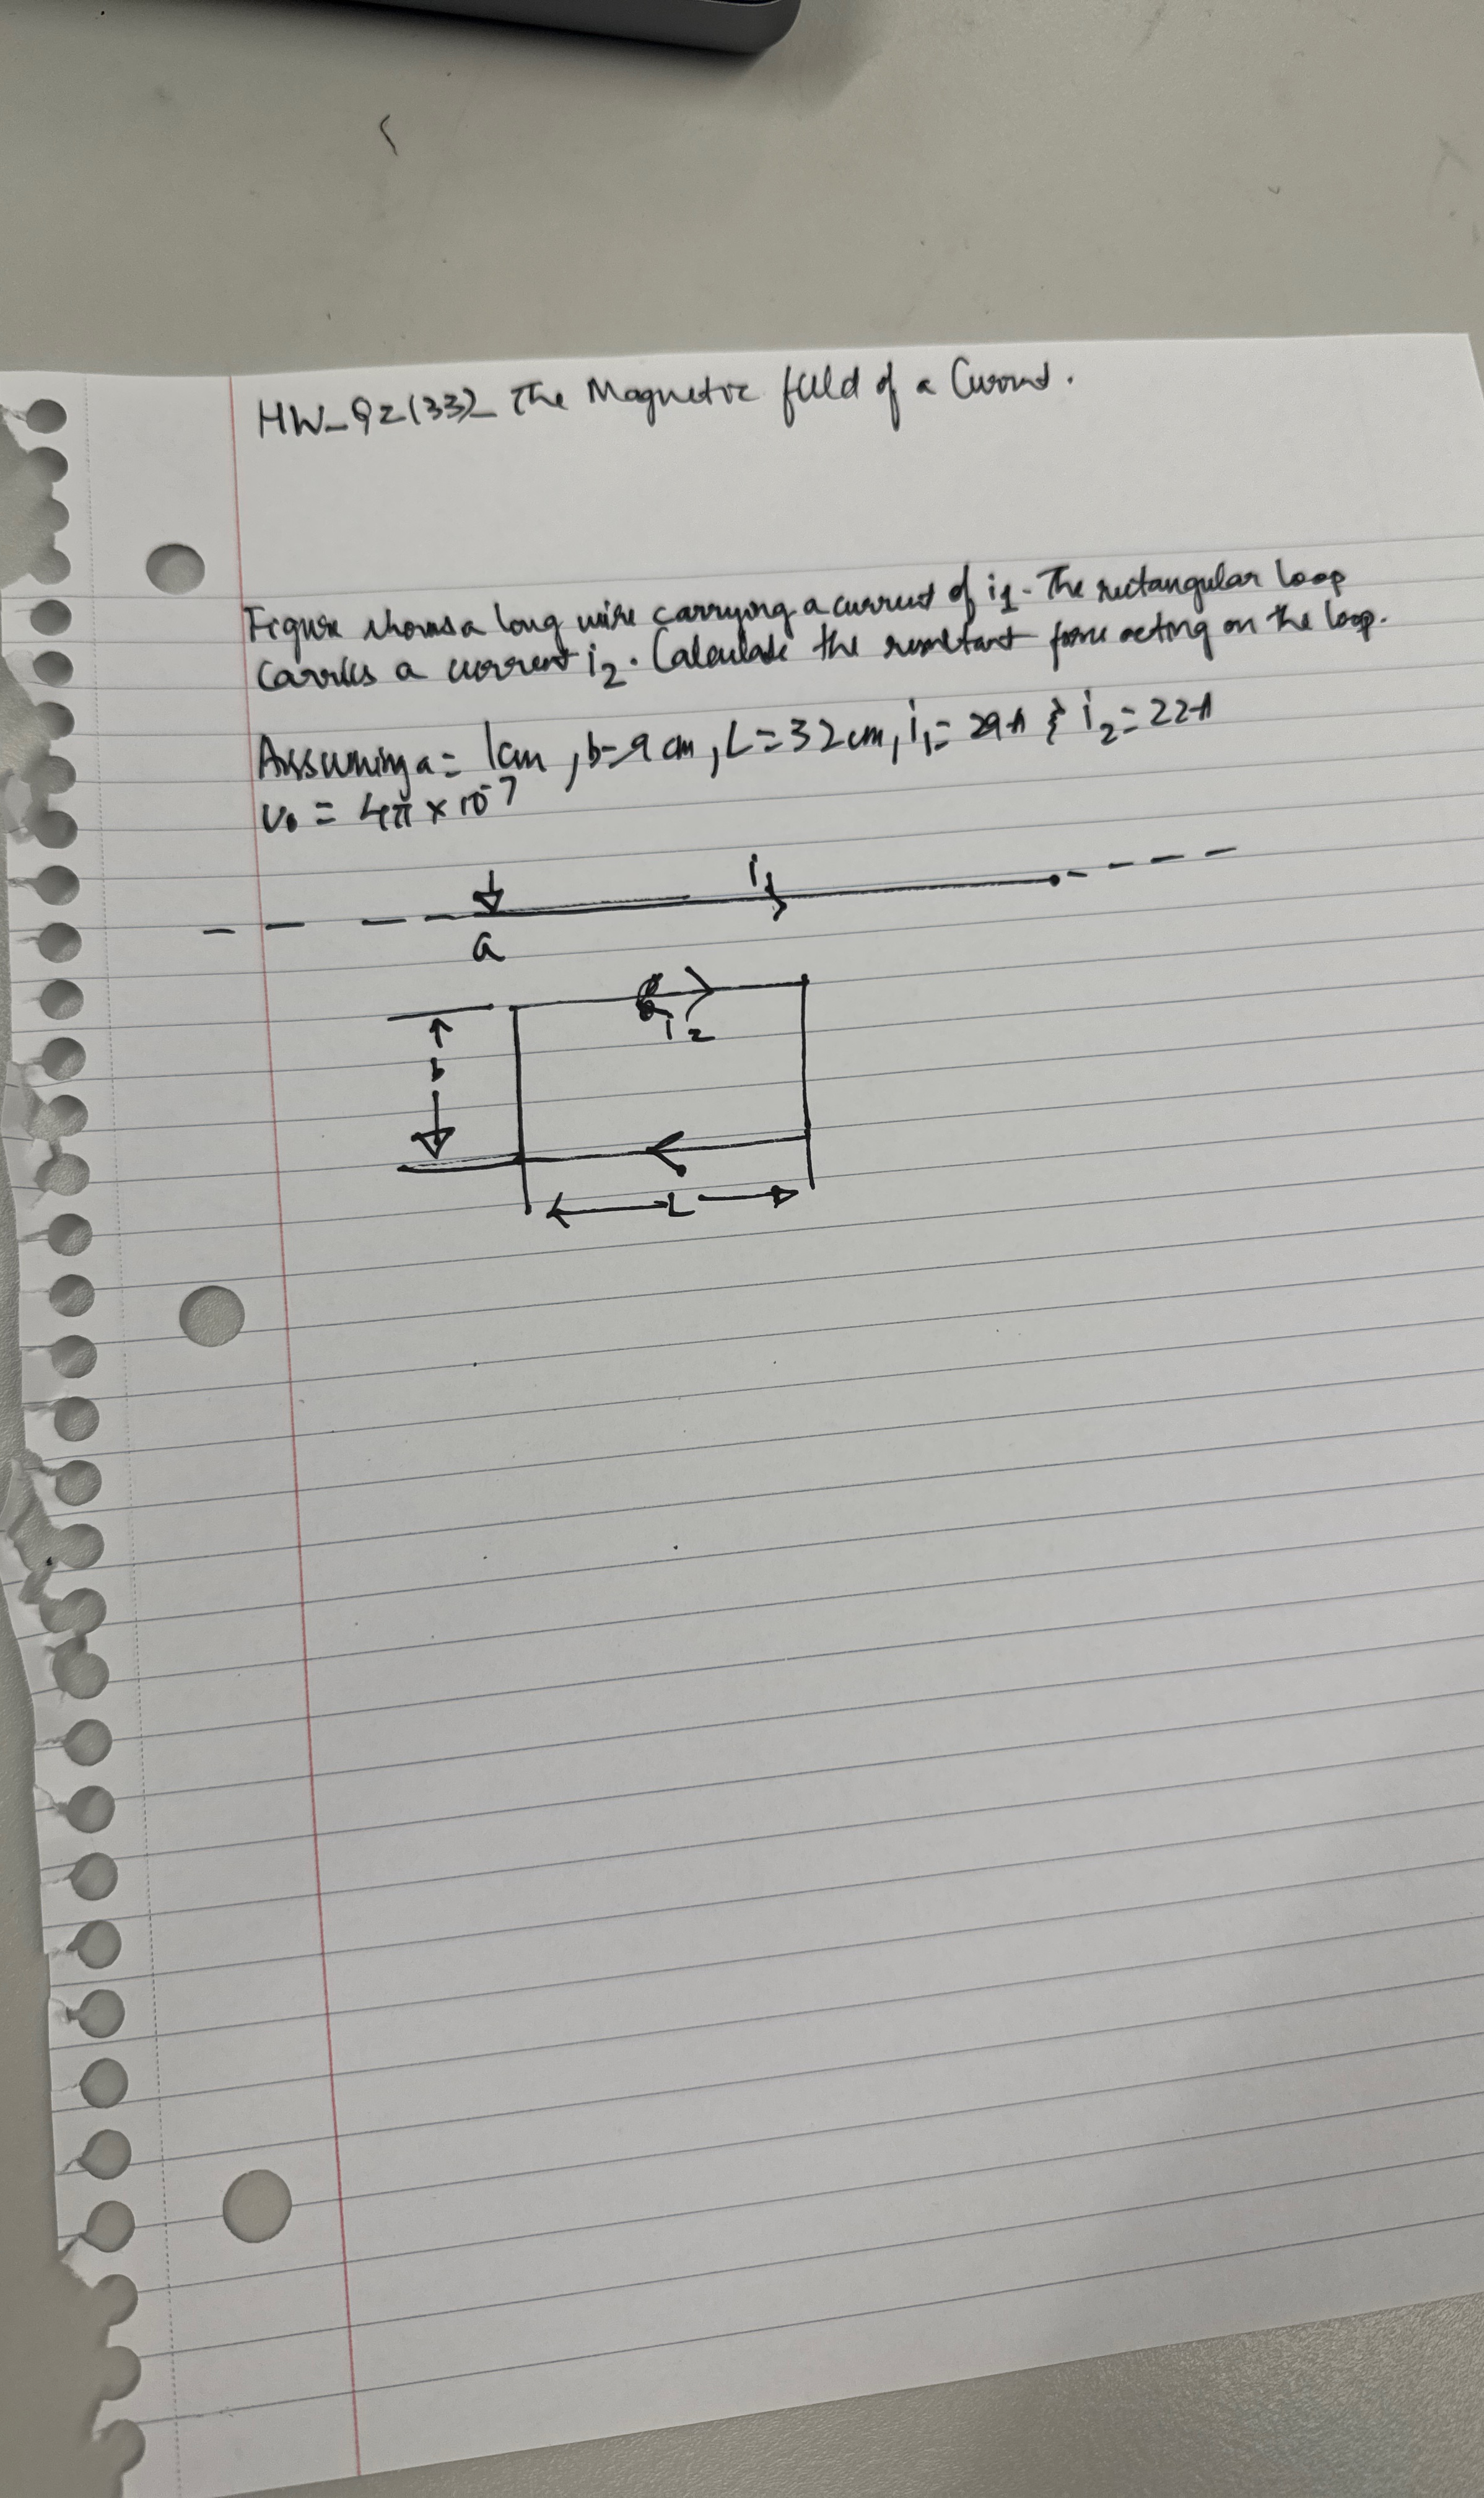 HW_Q2(33)_ The Magnetic field of a Current.
Figure shows a long wire carrying a current of i1. The rectangular loop
Carries a current i2. Calculate the resultant force acting on the loop.
Assuming a = 1cm, b=9cm, L=32cm, i1= 29A & i2=22A
u0 = 4π × 10-7
i1
a
i2
b
L